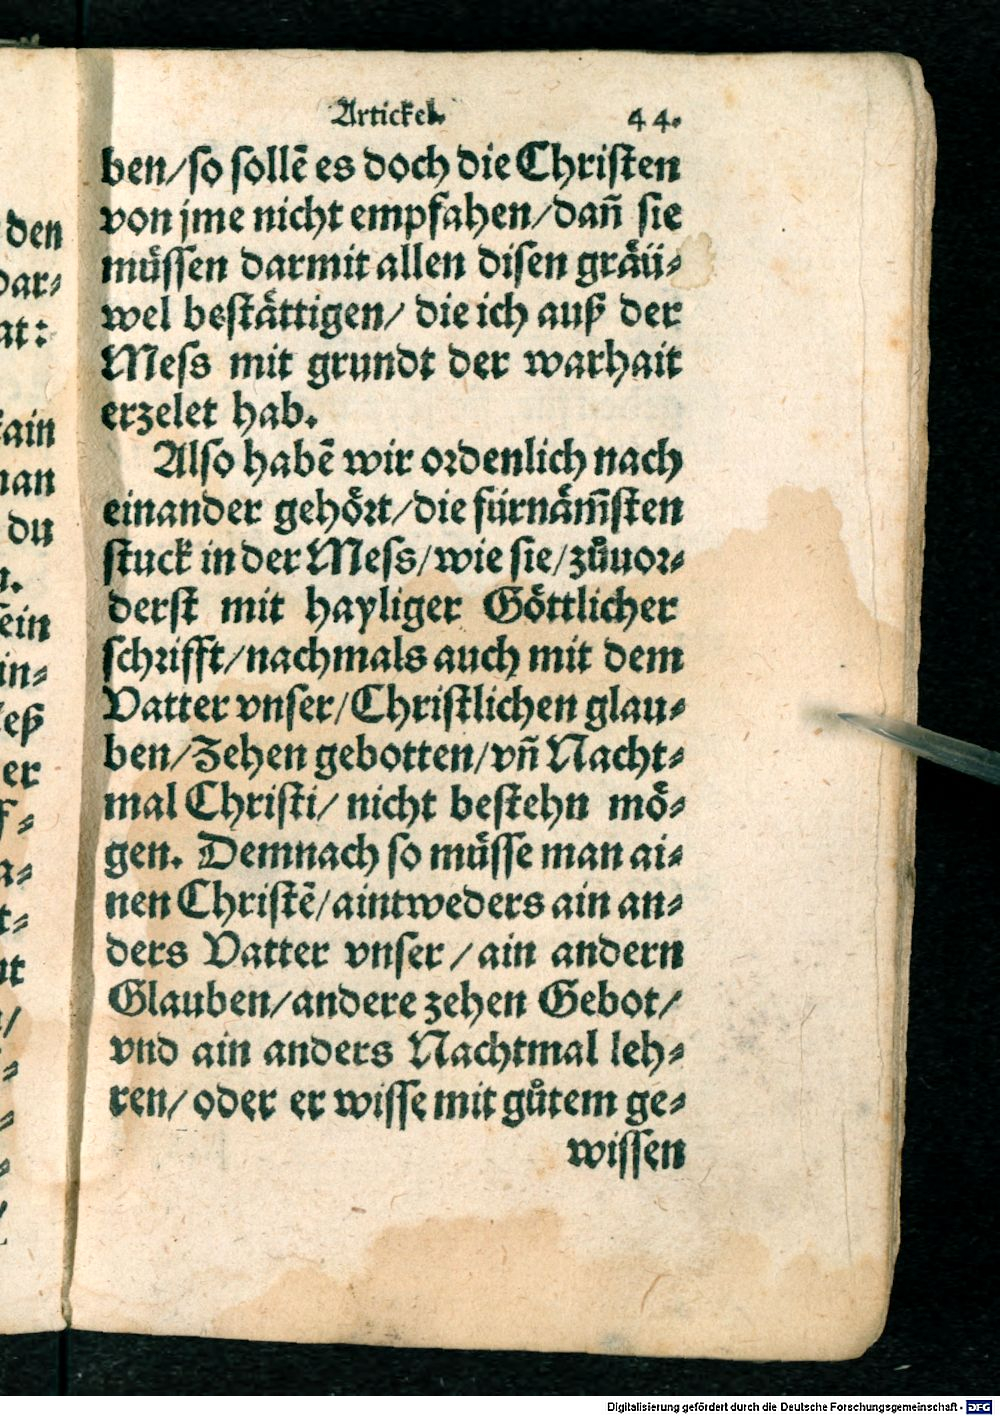 Artickel. 44.
ben/so sollē es doch die Christen
von jme nicht empfahen/dañ sie
müssen darmit allen disen gräü⸗
wel bestättigen/ die ich auß der
Mess mit grundt der warhait
erzelet hab.
Also habē wir ordenlich nach
einander gehört/die fürnäm̃sten
stuck in der Mess/wie sie/zůuor⸗
derst mit hayliger Göttlicher
schrifft/nachmals auch mit dem
Vatter vnser/Christlichen glau⸗
ben/Zehen gebotten/vñ Nacht⸗
mal Christi/ nicht bestehn mö⸗
gen. Demnach so müsse man ai⸗
nen Christē/aintweders ain an⸗
ders Vatter vnser/ain andern
Glauben/andere zehen Gebot/
vnd ain anders Nachtmal leh⸗
ren/oder er wisse mit gůtem ge⸗
wissen
den
dar⸗
at:
kain
man
du
n.
sein
in⸗
er
Digitalisierung gefördert durch die Deutsche Forschungsgemeinschaft - DFG